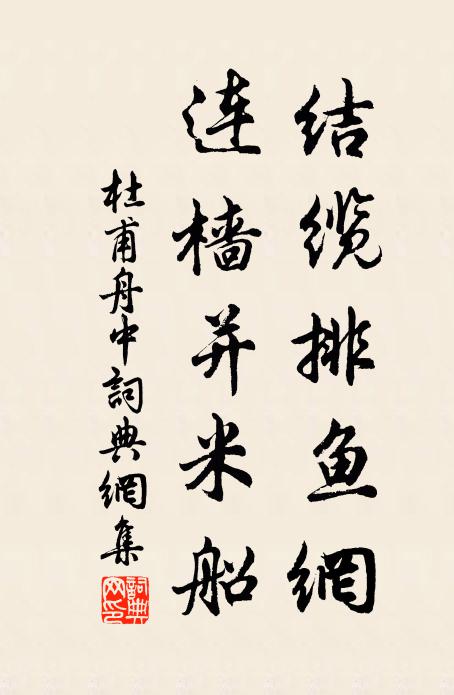 结缆排鱼網
连樯并米船
杜甫舟中詞典網集
詞典网印